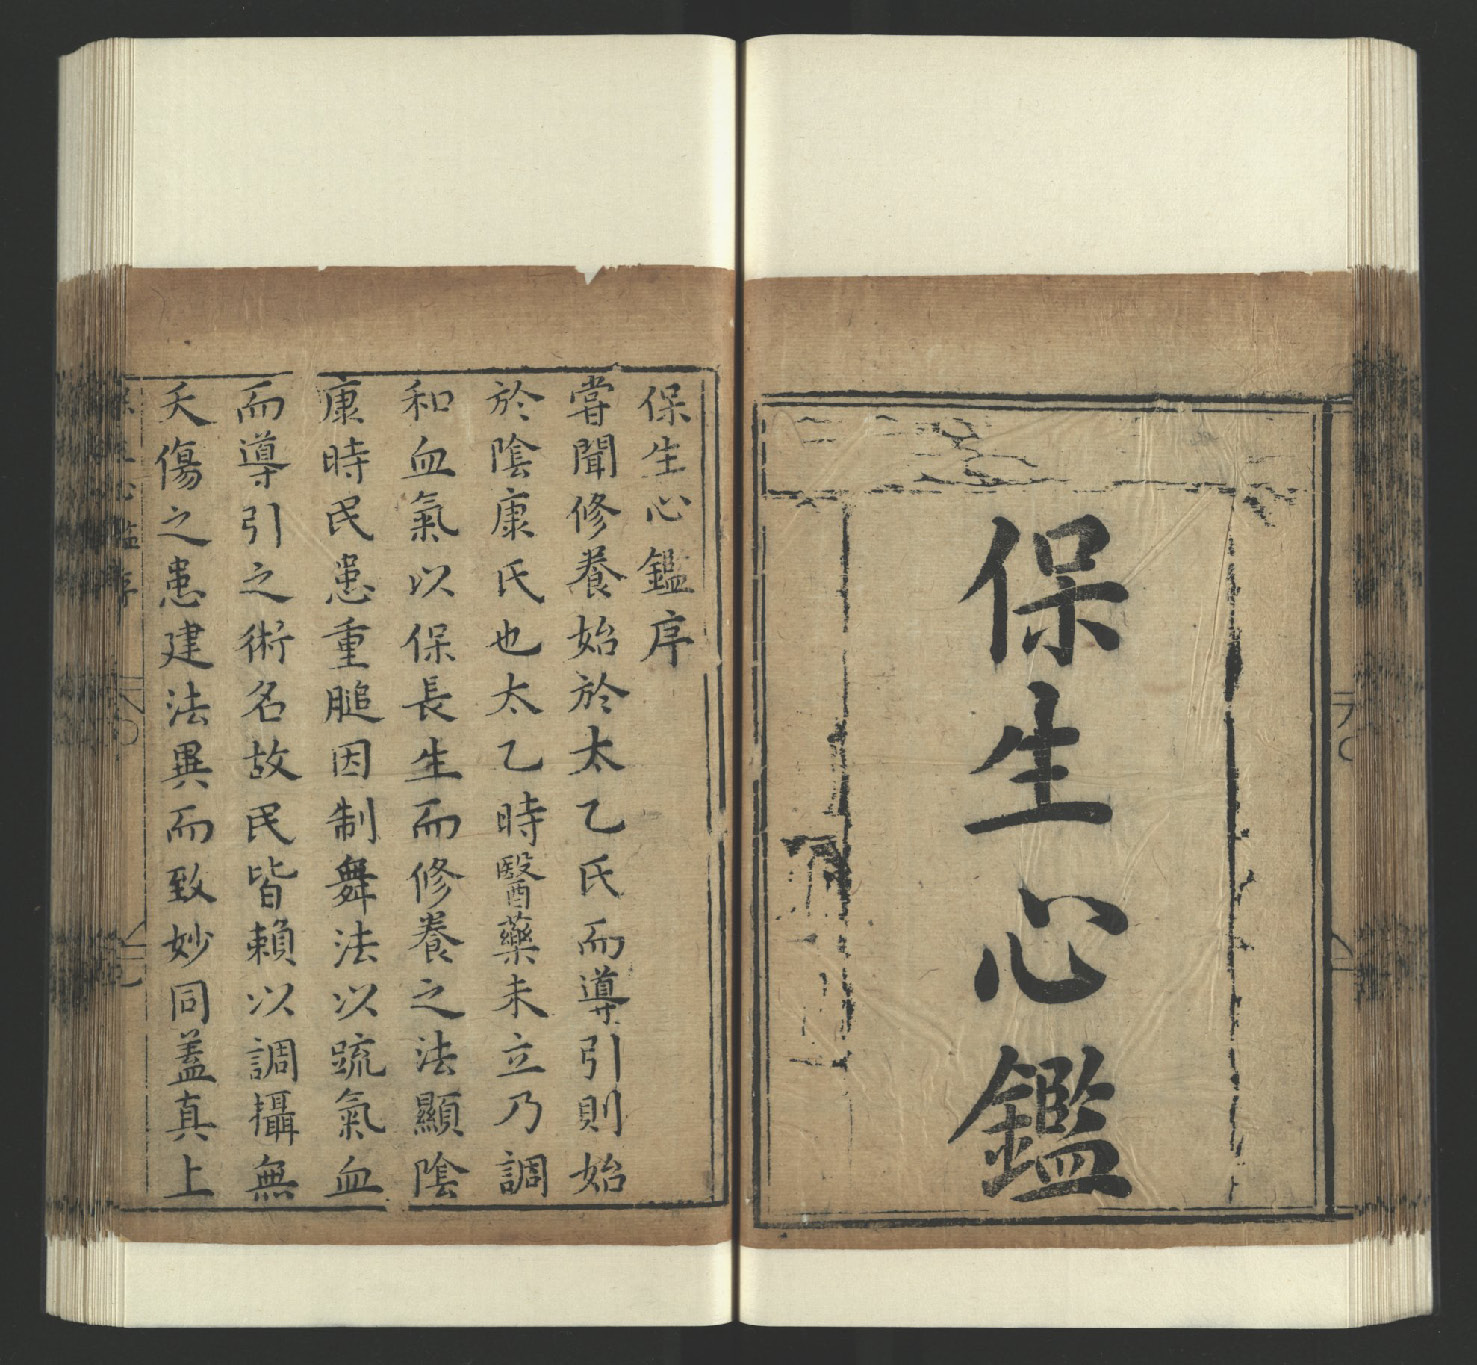 保生心鑑
保生心鑑序
嘗聞修養始於太乙氏而導引則始
於陰康氏也太乙時醫藥未立乃調
和血氣以保長生而修養之法顯陰
康時民患重膇因制舞法以疏氣血
而導引之術名故民皆賴以調攝無
夭傷之患建法異而致妙同蓋真上